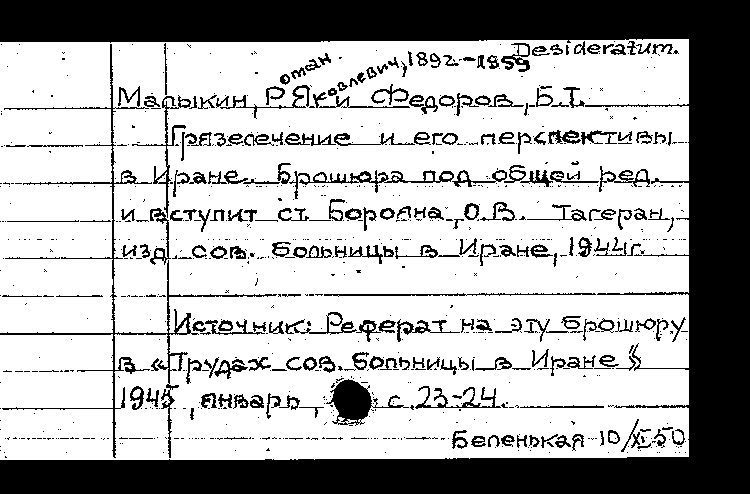 Desideratum.
оман Яковлевич, 1892-1959
Малыкин, Р.Я. и Федоров, Б.Т.
Грязелечение и его перспективы
в Иране. Брошюра под общей ред.
и вступит ст. Барояна, О.В. Тагеран,
изд сов. больницы в Иране, 1944г.
Источник: Реферат на эту брошюру
в «Трудах сов. больницы в Иране»
1945, январь, с. 23-24.
Беленькая 10/XI 50